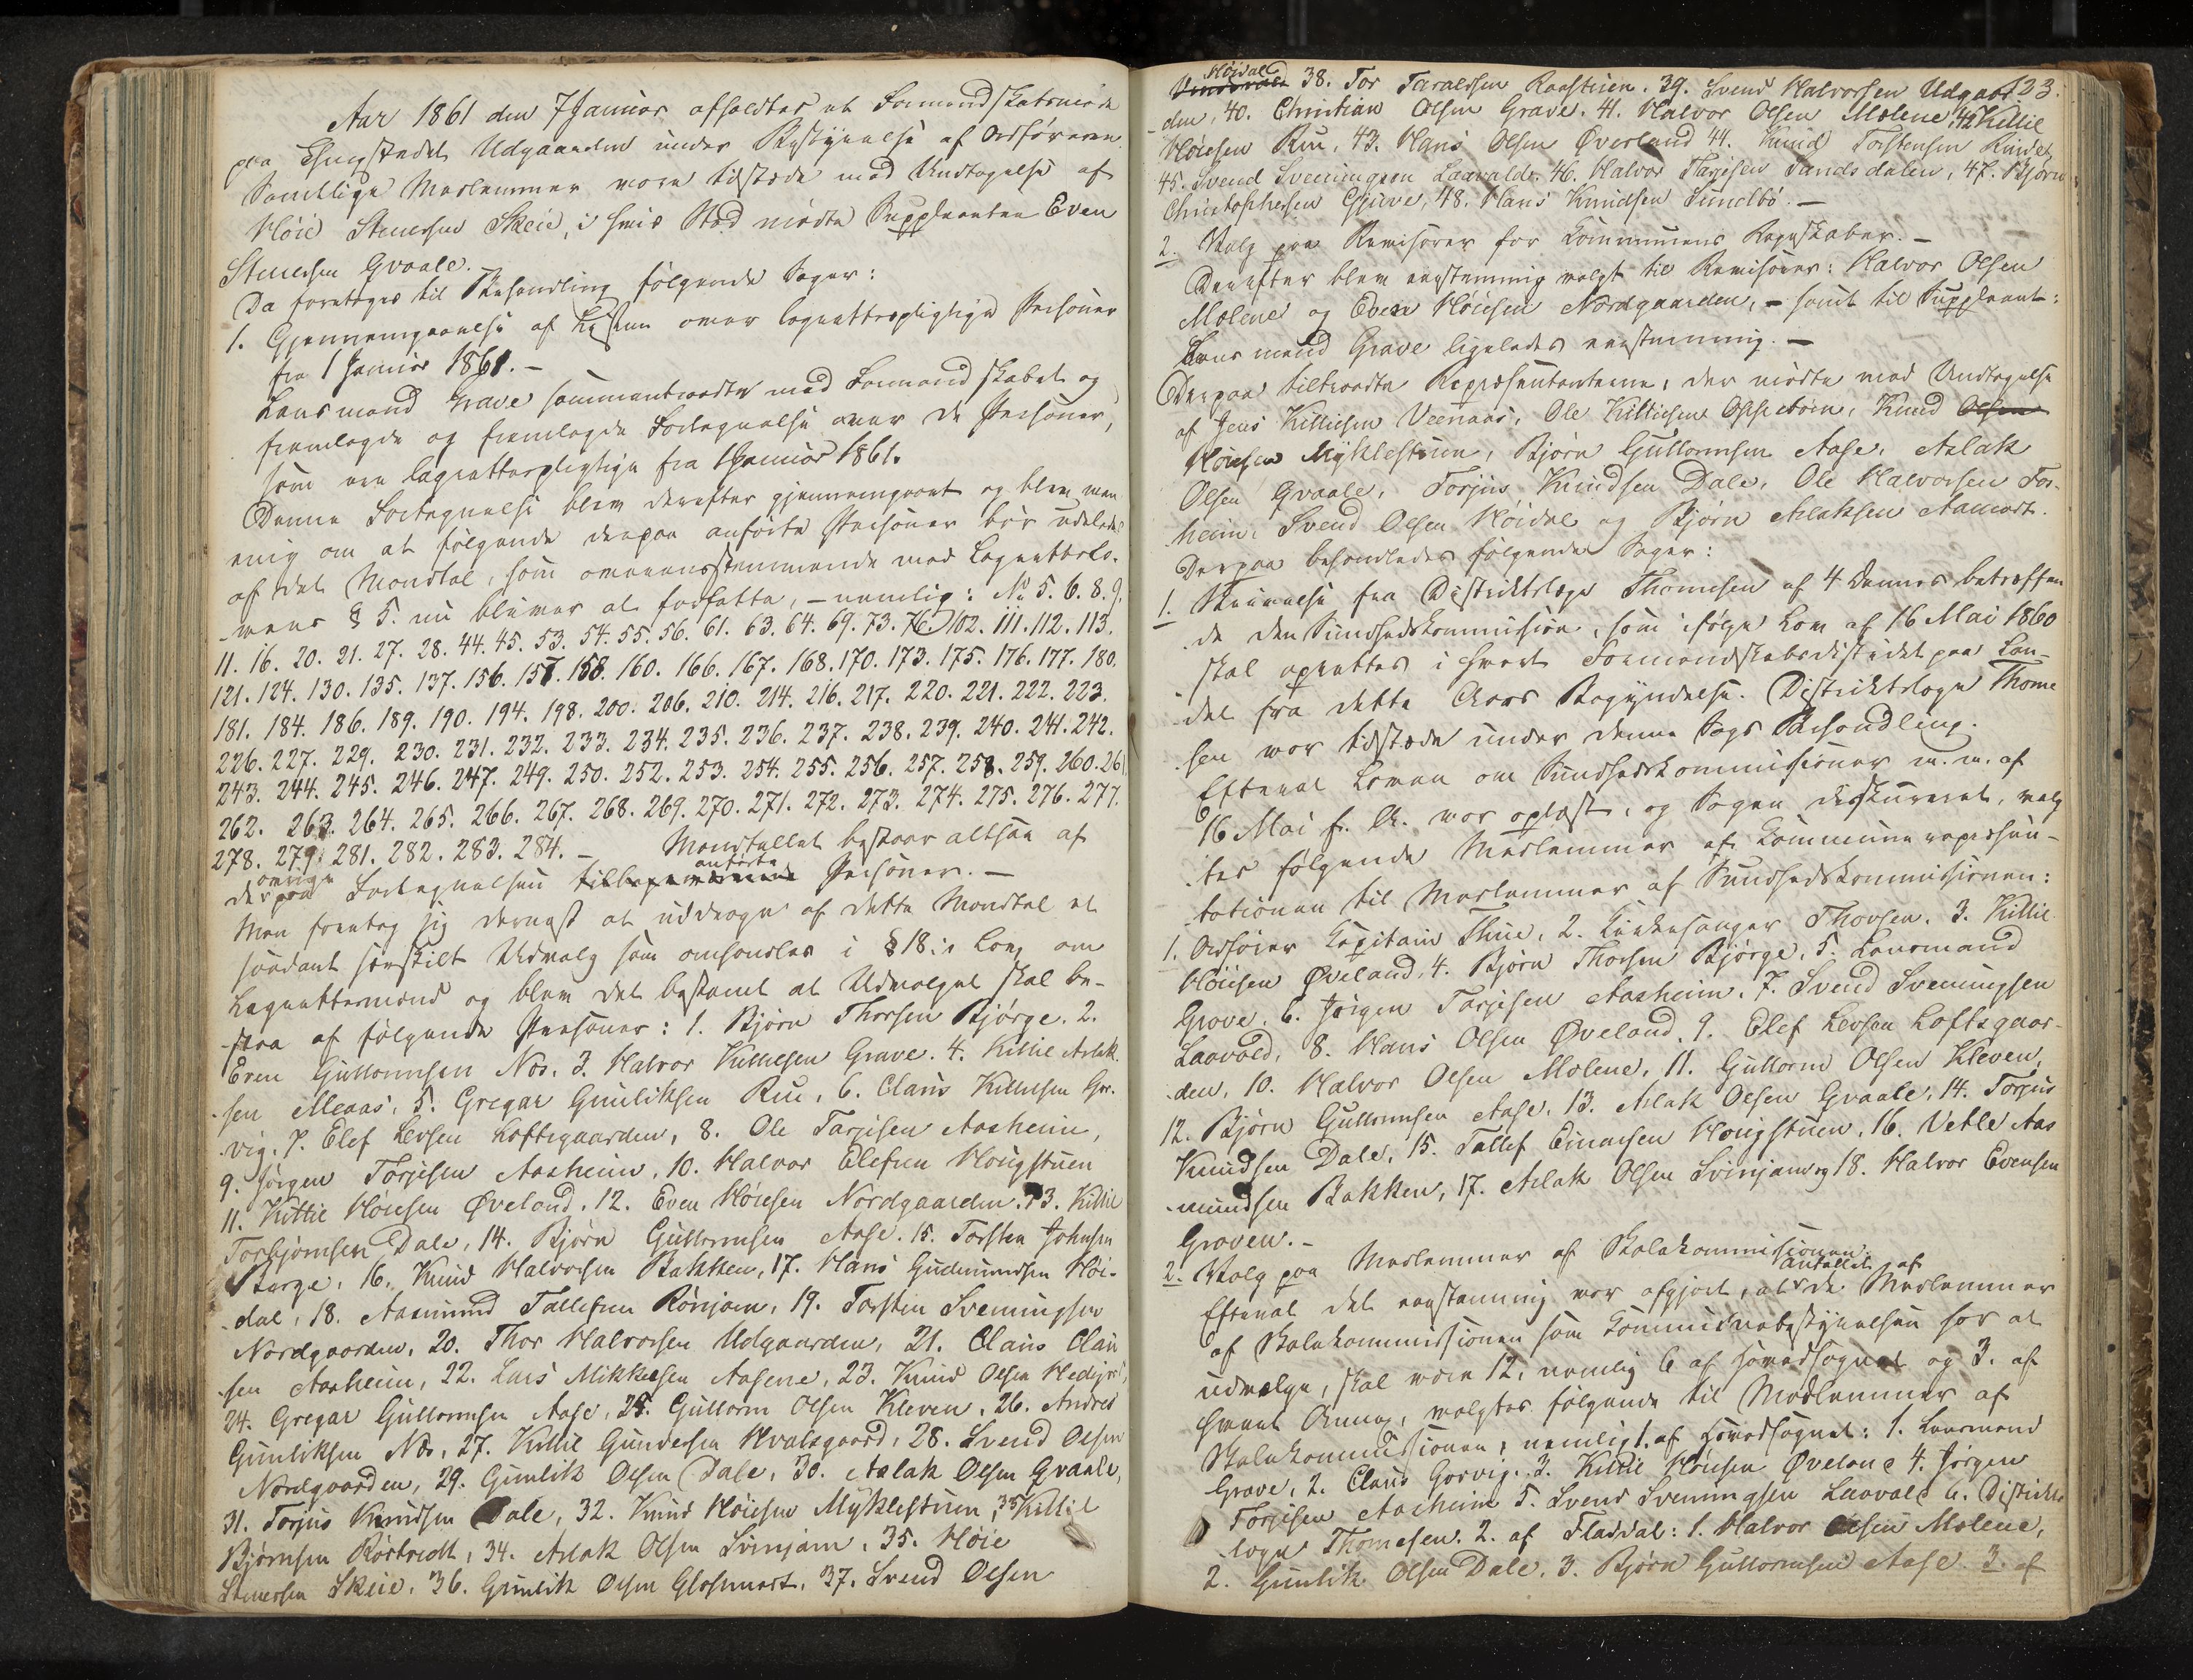 Aar 1861 den 7 Januar afholdtes et Formandskabsmøde
paa Thingstedet Udgaarden under Bestyrelse af Ordføreren
Samtlige Medlemmer vare tilstede med Undtagelse af
Høie Stenersen Skeie, i hvis Sted mødte Suppleanten Even
Stenersen Qvaale.
Da foretoges til Behandling følgende Sager:
1. Gjennemgaaelse af Listen over lagrettespligtige Personer
fra 1 Januar 1861.-
Lensmand Grave sammentraadte med Formandskabet og
fremlagde og fremlagde Fortegnelse over de Personer,
som ere lagrettespligtige fra 1 Januar 1861.
Denne Fortegnelse blev derefter gjennemgaaet og blev man
enig om at følgende derpaa anførte Personer bør udelades
af det Mandtal, som overensstemmende med Lagrettelo-
-vens § 5. nu bliver at forfatte, - nemlig: No 5. 6. 8. 9.
11. 16. 20. 21. 27. 28. 44. 45. 53. 54. 55. 56. 61. 63. 64. 69. 73. 76. 102. 111. 112. 113.
121. 124. 130. 135. 137. 156. 157. 158. 160. 166. 167. 168. 170. 173. 175. 176. 177. 180.
181. 184. 186. 189. 190. 194. 198. 200. 206. 210. 214. 216. 217. 220. 221. 222. 223.
226. 227. 229. 230. 231. 232. 233. 234. 235. 236. 237. 238. 239. 240. 241. 242.
243. 244. 245. 246. 247. 249. 250. 252. 253. 254. 255. 256. 257. 258. 259. 260. 261.
262. 263. 264. 265. 266. 267. 268. 269. 270. 271. 272. 273. 274. 275. 276. 277.
278. 279. 281. 282. 283. 284. - Mandtallet bestaar altsaa af
de øvrige paa Fortegnelsen anførte Personer. -
Man foretog sig dernæst at uddrage af dette Mandtal et
saadant særskilt Udvalg som omhandles i § 18 i Lov om
Lagrettemænd og blev det bestemt at Udvalget skal be-
-staa af følgende Personer: 1. Bjørn Thorsen Bjørge. 2.
Even Guttormsen Nes. 3. Halvor Kittilsen Grave. 4. Kittil Aslak-
-sen Meaas, 5. Gregar Gunliksen Rue, 6. Claus Kittilsen Gor-
-vig. 7. Elef Levsen Loftsgaarden, 8. Ole Tarjesen Aasheim,
9. Jørgen Torjesen Aasheim, 10. Halvor Elefsen Hougstuen
11. Kittil Høiesen Øveland. 12. Even Høiesen Nordgaarden. 13. Kittil
Torbjørnsen Dale, 14. Bjørn Guttormsen Aase. 15. Torsten Johnsen
Berge, 16. Knud Halvorsen Bakken, 17. Hans Gudmundsen Høi-
-dal, 18. Aasmund Tallefsen Rønjom, 19. Torsten Sveningsen
Nordgaarden, 20. Thor Halvorsen Udgaarden, 21. Claus Clau-
-sen Aasheim, 22. Lars Mikkelsen Aasene, 23. Knud Olsen
24. Gregar Guttormsen Aase, 25. Guttorm Olsen Kleven, 26. Andres
Gunliksen Nes, 27. Kittil Gundersen Hvalsgaard, 28. Svend Olsen
Nordgaarden, 29. Gunlik Olsen Dale, 30. Aslak Olsen Qvaale,
31. Torjus Knudsen Dale, 32. Knud Høiesen Myklestuen, 33 Kittil
Bjørnsen Rørtvedt, 34. Aslak Olsen Svinjam, 35. Høie
Stenersen Skeie. 36. Gunlik Olsen 37. Svend Olsen
Høidal 38. Tor Taraldsen Raastuen. 39. Svend Halvorsen Udgaar- 123.
-den, 40. Christian Olsen Grave. 41. Halvor Olsen Molene, 42 Kittil
Høiesen Rue, 43. Hans Olsen Øverland 44. Knud Torstensen
45. Svend Sveningsen Laavald. 46. Halvor Tarjesen Sandsdalen, 47. Bjørn
Christophersen Gjuve, 48. Hans Knudsen Sundbø. -
2. Valg paa Revisorer for Kommunens Regnskaber. -
Derefter blev eenstemmig valgt til Revisorer: Halvor Olsen
Molene og Even Høiesen Nordgaarden, - samt til Suppleant:
Lensmand Grave ligeledes eenstemmig. -
Derpaa tiltraadte Repræsentanterne, der mødte med Undtagelse
af Jens Kittilsen Veenaas, Ole Kittilsen Opsetveien, Knud Olsen
Høiesen Myklestuen, Bjørn Guttormsen Aase, Aslak
Olsen Qvaale, Torjus Knudsen Dale, Ole Halvorsen For-
-heim, Svend Olsen Høidal og Bjørn Aslaksen Aamodt.
Derpaa behandledes følgende Sager:
1. Skrivelse fra Distriktslæge Thomesen af 4 Dennes betræffen
-de den Sundhedskommission, som ifølge Lov af 16 Mai 1860
skal oprettes i hvert Formandskabsdistrikt paa Lan-
-det fra dette Aars Begyndelse. Distriktslæge Thome-
-sen var tilstede under denne Sags Behandling.
Efterat Loven om Sundhedskommissioner m.m. af
16 Mai f. A. var oplæst, og Sagen diskuteret, valg
-tes følgende Medlemmer af Kommunerepræsen-
-tationen til Medlemmer af Sundhedskommissionen:
1. Ordfører Kapitain Thue, 2. Kirkesanger Thorsen. 3. Kittil
Høiesen Øveland, 4. Bjørn Thorsen Bjørge, 5. Lensmand
Grave. 6. Jørgen Torjesen Aasheim, 7. Svend Sveningsen
Laavald, 8. Hans Olsen Øveland, 9. Elef Levsen Loftsgaar-
-den, 10. Halvor Olsen Molene, 11. Guttorm Olsen Kleven,
12. Bjørn Guttormsen Aase, 13. Aslak Olsen Qvaale, 14. Torjus
Knudsen Dale, 15. Tallef Einarsen Hougstuen, 16. Vetle Aas-
-mundsen Bakken, 17. Aslak Olsen Svinjam og 18. Halvor Evensen
Graven. -
2. Valg paa Medlemmer af Skolekommissionen.
Efterat det eenstemmig var afgjort, at Antallet af de Medlemmer
af Skolekommissionen som Kommunebestyrelsen har at
udvælge, skal være 12, nemlig 6 af Hovedsognet og 3. af
hvert Annex, valgtes følgende til Medlemmer af
Skolekommissionen, nemlig 1. af Hovedsognet: 1. Lensmand
Grave, 2. Claus Gorvig. 3. Kittil Høiesen Øveland 4. Jørgen
Torjesen Aasheim 5. Svend Sveningsen Laavald 6. Distrikts-
læge Thomesen. 2. af Flatdal: 1. Halvor Olsen Molene,
2. Gunlik Olsen Dale. 3. Bjørn Guttormsen Aase 3. af